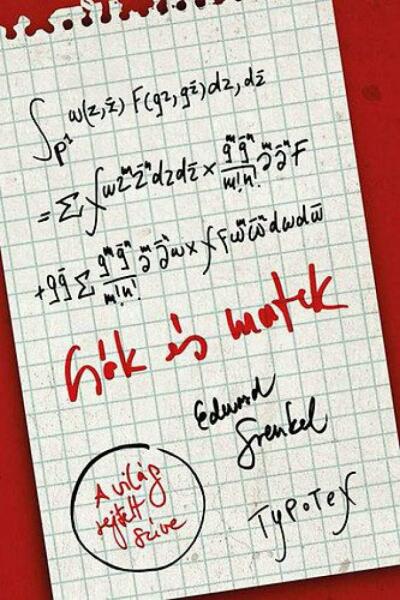 ∫_{P¹} ω(z,z̄) F(qz,q̄z̄)dz,dz̄
= Σ∫ωz^m z̄^n dzdz̄ × q^m q̄^n/m!n! ∂^m ∂̄^n F
+qq̄ Σ q^m q̄^n/m!n! ∂^m ∂̄^n ω × ∫Fω^m ω̄^n dωdω̄
Csók és matek
Edward
Frenkel
A világ
rejtett
szíve
TYPOTEX